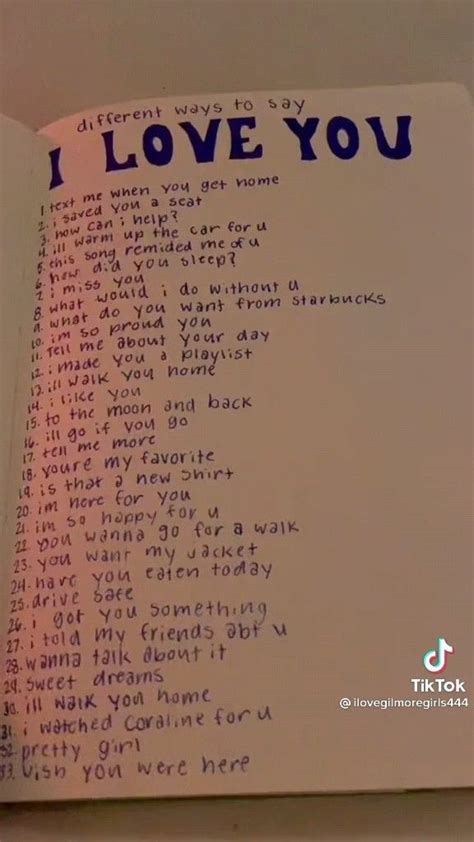 different ways to say
I LOVE YOU
1. text me when you get home
2. i saved you a seat
3. how can i help?
4. ill warm up the car for u
5. this song remided me of u
6. how did you sleep?
7. i miss you
8. what would i do without u
9. what do you want from starbucks
10. im so proud you
11. Tell me about your day
12. i made you a playlist
13. ill walk you home
14. i like you
15. to the moon and back
16. ill go if you go
17. tell me more
18. youre my favorite
19. is that a new shirt
20. im here for you
21. im so happy for u
22. you wanna go for a walk
23. you want my jacket
24. have you eaten today
25. drive safe
26. i got you something
27. i told my friends abt u
28. wanna talk about it
29. sweet dreams
30. ill walk you home
31. i watched coraline for u
32. pretty girl
33. wish you were here
TikTok
@ilovegilmoregirls444